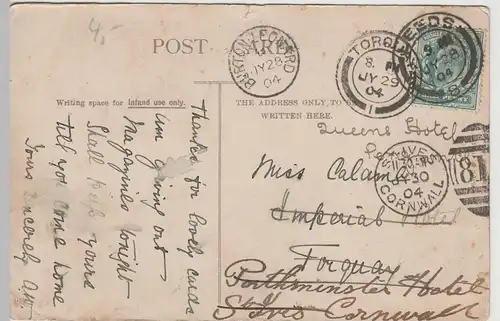 4,-
POST CARD
BURTON LEONARD
JY 28
04
TORQUAY
8. PM
JY 29
04
1
LEEDS
04
Writing space for Inland use only.
THE ADDRESS ONLY TO BE
WRITTEN HERE.
Thanks for lovely cards
Am giving out
Magazines tonight
Shall keep yours
till you come home
Yours Sincerely
Queens Hotel
Miss Calamel
Imperial Hotel
Torquay
Porthminster Hotel
St Ives Cornwall
ST. IVES
JY 30
04
CORNWALL